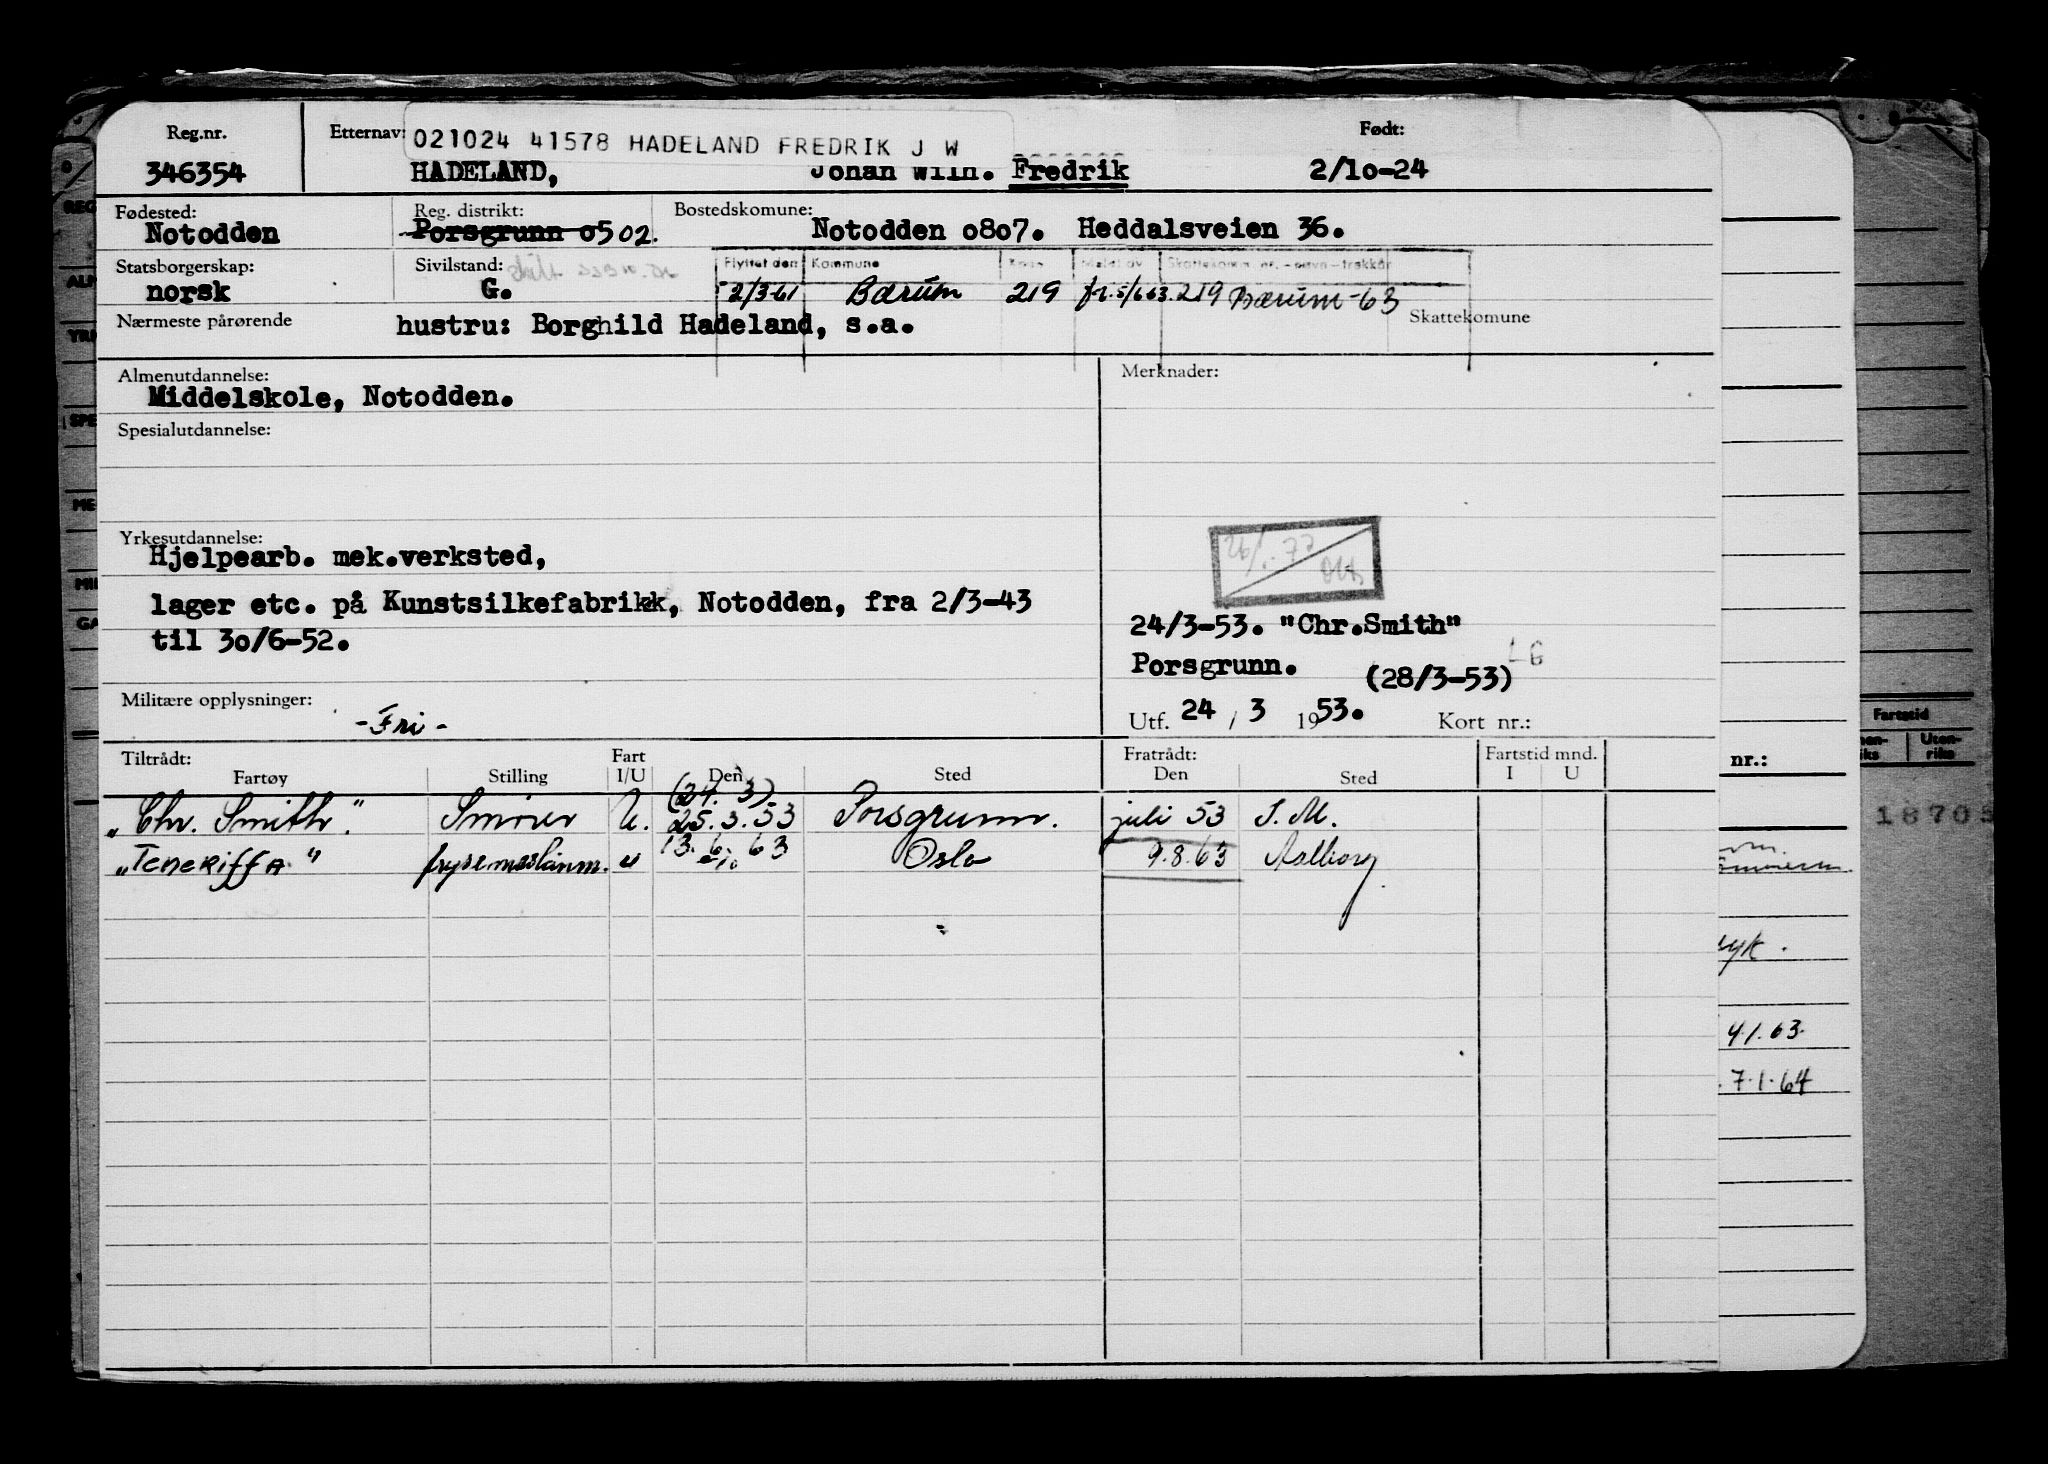 Reg.nr.
346354
Etternav:
021024 41578 HADELAND FREDRIK J W
HADELAND, Johan Wilh. Fredrik
Født:
2/10-24
Fødested:
Notodden
Reg. distrikt:
Porsgrunn 0502.
Bostedskomune:
Notodden 0807. Heddalsveien 36.
Statsborgerskap:
norsk
Sivilstand:
G.
Flyttet den Kommune
2/3-61 Bærum 219 fr. 5/6 63. 219 Bærum -63
Skattekomune
Nærmeste pårørende
hustru: Borghild Hadeland, s.a.
Almenutdannelse:
Middelskole, Notodden.
Spesialutdannelse:
Yrkesutdannelse:
Hjelpearb. mek.verksted,
lager etc. på Kunstsilkefabrikk, Notodden, fra 2/3-43
til 30/6-52.
Militære opplysninger:
- Fri -
Merknader:
24/3-53. "Chr.Smith"
Porsgrunn. (28/3-53)
Utf. 24 / 3 1953. Kort nr.:
Tiltrådt: Fart Fratrådt: Fartstid mnd.
Fartøy Stilling I/U Den Sted Den Sted I U
(24. 3)
"Chr. Smith." Smører U. 25.3.53 Porsgrunn. juli 53 S. M.
"Teneriffa" u 13.6.63 Oslo 9.8.63 Aalborg
nr.:
4.1.63.
7.1.64
Fartstid
Uten-
riks
18705